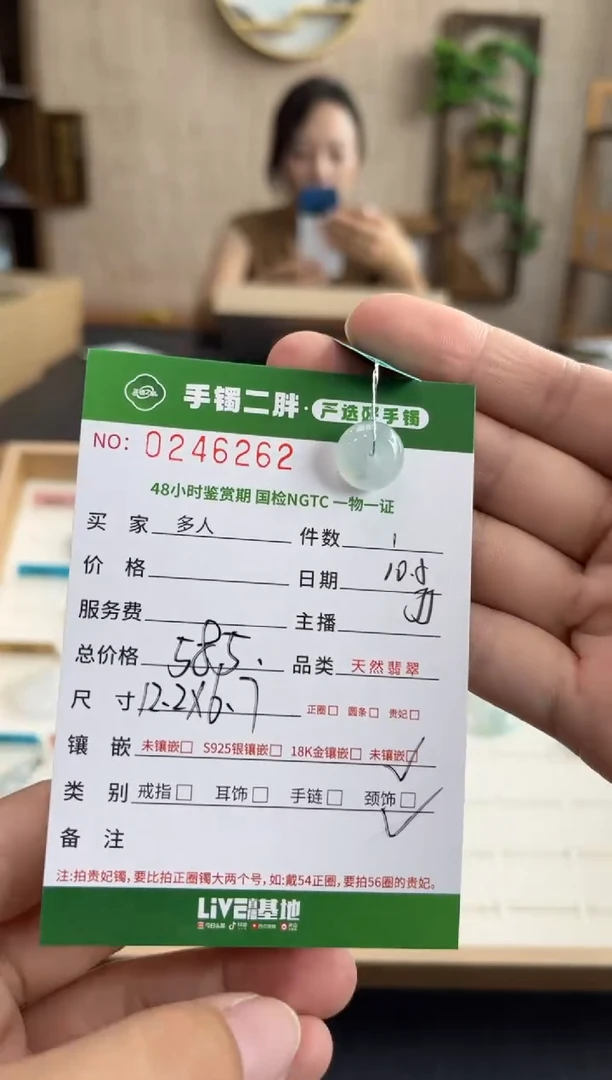 手镯二胖·严选好手镯
NO: 0246262
48小时鉴赏期 国检NGTC 一物一证
买家 多人 件数 1
价格 日期 10.8
服务费 主播
总价格 585. 品类 天然翡翠
尺寸 12.2X6.7 正圈□ 圆条□ 贵妃□
镶嵌 未镶嵌□ S925银镶嵌□ 18K金镶嵌□ 未镶嵌□✓
类别 戒指□ 耳饰□ 手链□ 颈饰□✓
备注
注:拍贵妃镯,要比拍正圈镯大两个号,如:戴54正圈,要拍56圈的贵妃。
LiVE基地